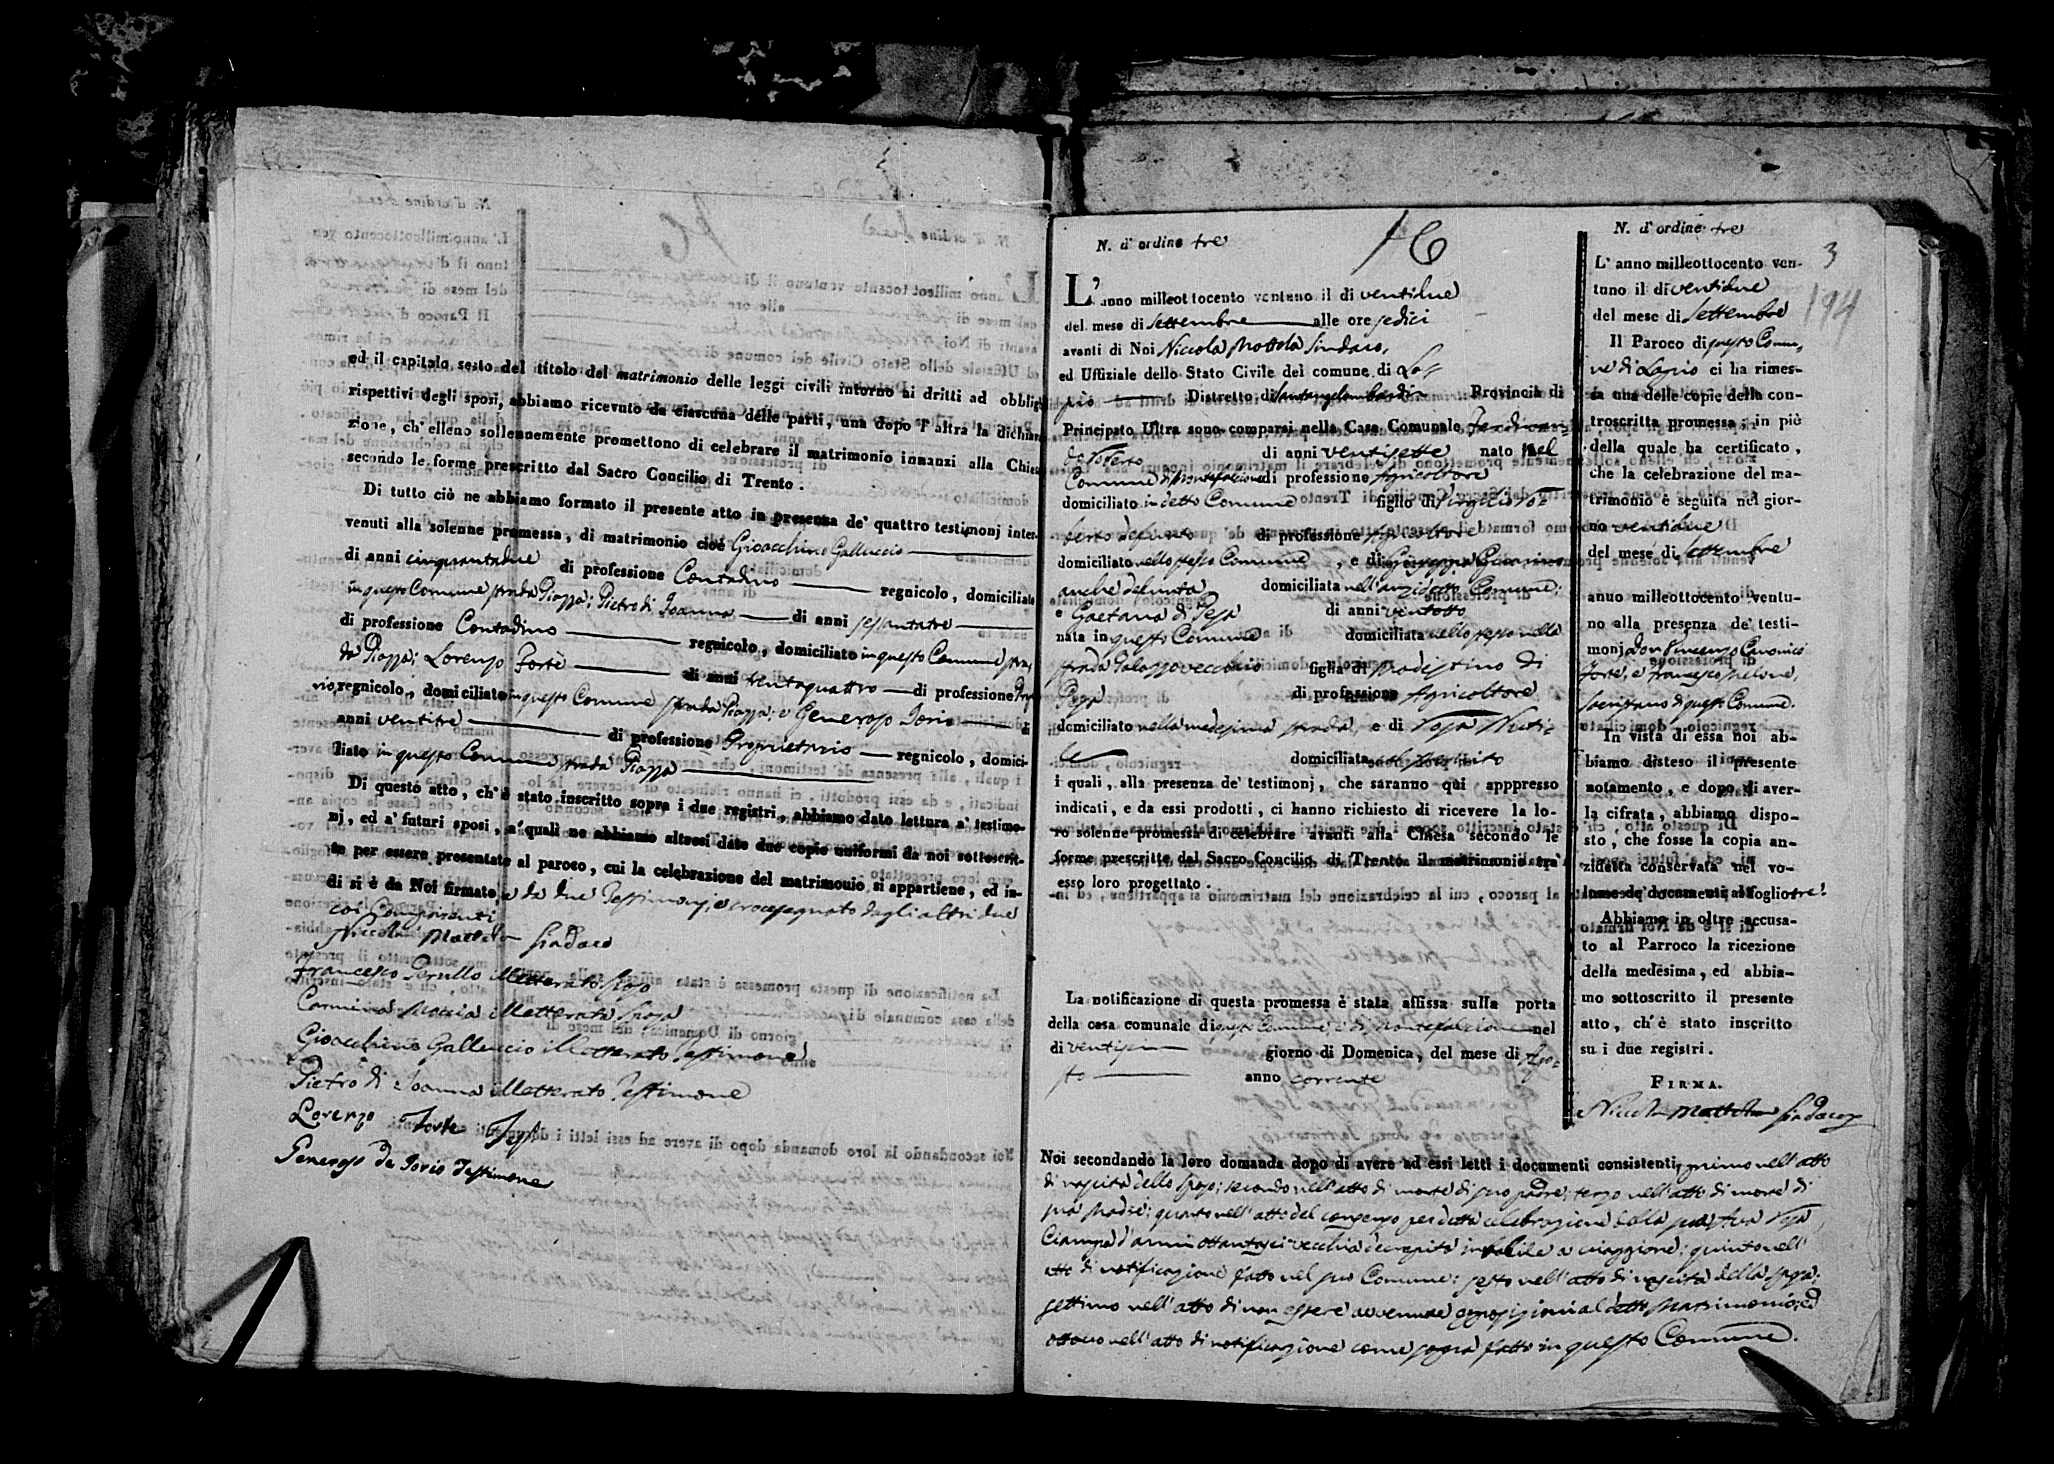 ed il capitolo sesto del titolo del matrimonio delle leggi civili intorno ai dritti ad obblig
rispettivi degli sposi, abbiamo ricevuto da ciascuna delle parti, una dopo l' altra la dichiara
zione, ch' elleno sollennemente promettono di celebrare il matrimonio innanzi alla Chiesa
secondo le forme prescritto dal Sacro Concilio di Trento.
Di tutto ciò ne abbiamo formato il presente atto in presenza de' quattro testimonj inter-
venuti alla solenne promessa, di matrimonio cioè Gioacchino Galluccio
di anni cinquantadue di professione Contadino regnicolo, domiciliato
in questo Comune strada Piazza; Pietro di Joanna di anni sessantatre
di professione Contadino regnicolo, domiciliato in questo Comune stra
da Piazza; Lorenzo Forte di anni trentaquattro di professione
regnicolo, domiciliato in questo Comune strada Piazza; e Generoso Iorio di
anni ventitre di professione Proprietario regnicolo, domici-
liato in questo Comune strada Piazza
Di questo atto, ch' è stato inscritto sopra i due registri, abbiamo dato lettura a' testimo-
nj, ed a' futuri sposi, a' quali ne abbiamo altresì dato due copie uniformi da noi sottoscrit-
te per essere presentate al paroco, cui la celebrazione del matrimonio si appartiene, ed in-
di si è da Noi firmato, e da due Testimonj, e crocesegnato dagli altri due
coi Comparenti
Niccola Mottola Sindaco
Francesco Perullo illetterato Sposo
Carmina Moccia illetterata Sposa
Gioacchino Galluccio illetterato Testimone
Pietro di Joanna illetterato Testimone
Lorenzo Forte Tesf
Generoso de Iorio Testimone
N. d' ordine tre
16
L' anno milleottocento ventuno il dì ventidue
del mese di Settembre alle ore sedici
avanti di Noi Niccola Mottola Sindaco,
ed Uffiziale dello Stato Civile del comune di La=
pio Distretto di Santangelombardi Provincia di
Principato Ultra sono comparsi nella Casa Comunale Ferdinan=
do di anni ventisette nato nel
Comune di Montefalcione di professione Agricoltore
domiciliato in detto Comune figlio di Virgilio
defunto di professione Agricoltore
domiciliato nello stesso Comune, e di Giuseppa
anche defunta domiciliata nell' anzidetto Comune;
e Gaetana di Pesa di anni ventotto
nata in questo Comune domiciliata nello stesso nella
strada Palazzovecchio figlia di Modestino di
Pesa di professione Agricoltore
domiciliato nella medesima strada, e di Rosa
domiciliata
i quali, alla presenza de' testimonj, che saranno qui apppresso
indicati, e da essi prodotti, ci hanno richiesto di ricevere la lo-
ro solenne promessa di celebrare avanti alla Chiesa secondo le
forme prescritte dal Sacro Concilio di Trento il matrimonio tra
esso loro progettato.
La notificazione di questa promessa è stata affissa sulla porta
della casa comunale di questo Comune e di Montefalcione nel
di ventisei giorno di Domenica, del mese di Ago=
sto anno corrente
Noi secondando la loro domanda dopo di avere ad essi letti i documenti consistenti, primo nell' atto
di nascita dello sposo; secondo nell' atto di morte di suo padre; terzo nell' atto di morte di
sua Madre; quarto nell' atto del consenso per detta celebrazione dalla sua Ava Rosa
Ciampa d' anni ottantasei vecchia decrepita inabile a viaggiare; quinto nell'
atto di notificazione fatto nel suo Comune; sesto nell' atto di nascita della sposa;
settimo nell' atto di non essere avvenute opposizioni al detto Matrimonio; ed
ottavo nell' atto di notificazione come sopra fatto in questo Comune.
N. d' ordine tre
3
194
L' anno milleottocento ven-
tuno il di ventidue
del mese di Settembre
Il Paroco di questo Comu,
ne di Lapio ci ha rimes-
sa una delle copie della con-
troscritta promessa; in piè
della quale ha certificato,
che la celebrazione del ma-
trimonio è seguita nel gior-
no ventidue
del mese di Settembre
anno milleottocento ventu-
no alla presenza de' testi-
monj Don Vincenzo Canonico
Forte, e Francesco
Sacristano di questo Comune.
In vista di essa noi ab-
biamo disteso il presente
notamento, e dopo di aver-
la cifrata, abbiamo dispo-
sto, che fosse la copia an-
zidetta conservata nel vo-
lume de' documenti al foglio tre!
Abbiamo in oltre accusa-
to al Parroco la ricezione
della medesima, ed abbia-
mo sottoscritto il presente
atto, ch' è stato inscritto
su i due registri.
FIRMA.
Niccola Mottola Sindaco